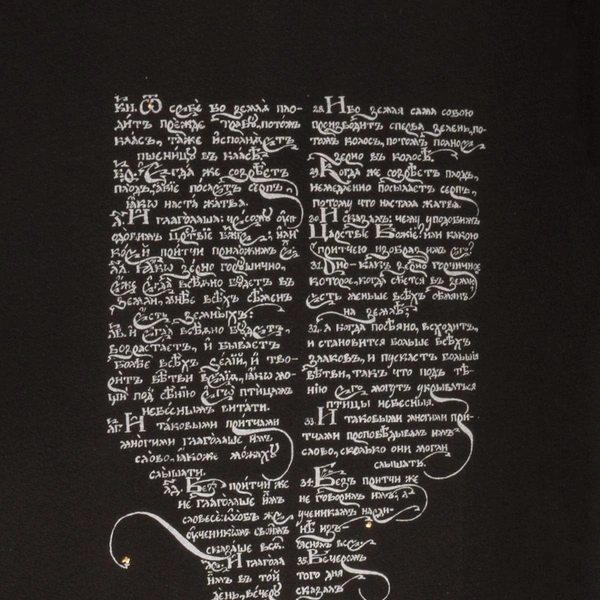 КИ. Ѿ себѐ бо землѧ̀ пло-
дитъ прежде траву, потомъ
класъ, таже исполнѧетъ
пшеницу въ класѣ.
КѲ. Егда же созрѣетъ
плодъ, абїе послетъ серпъ,
ꙗкѡ наста жатва.
Л. И глаголаше: чесомꙋ
ꙋподобимъ цр҃твїе Бж҃їе; или
коей притчи приложимъ ѐ;
ЛА. Ꙗкѡ зерно горꙋшично,
еже егда всѣѧно бꙋдетъ въ
земли, мнѣе всѣхъ сѣменъ
есть земныхъ:
ЛВ. и егда всѣѧно бꙋдетъ,
возрастаетъ, и бываетъ
болѣе всѣхъ ѕелїй, и тво-
ритъ вѣтви велїѧ, ꙗкѡ мо-
щи под сѣнїю егѡ птицамъ
небеснымъ витати.
ЛГ. И таковыми притчами
многими глаголаше имъ
слово, ꙗкоже можахꙋ
слышати.
ЛД. Без притчи же
не глаголаше имъ
словесе: ѡсобь же
ꙋченикѡмъ своимъ
сказаше всѧ.
ЛЕ. И глагола
имъ въ той
день, вечерꙋ
28. Ибо земля сама собою
производитъ сперва зелень, по-
томъ колосъ, потомъ полное
зерно въ колосѣ.
29. Когда же созрѣетъ плодъ,
немедленно посылаетъ серпъ,
потому что настала жатва.
30. И сказалъ: чему уподобимъ
Царствіе Божіе? или какою
притчею изобразимъ его?
31. Оно – какъ зерно горчичное,
которое, когда сѣется въ землю,
есть меньше всѣхъ сѣмянъ
на землѣ;
32. а когда посѣяно, всходитъ,
и становится больше всѣхъ
злаковъ, и пускаетъ большія
вѣтви, такъ что подъ тѣ-
нію его могутъ укрываться
птицы небесныя.
33. И таковыми многими при-
тчами проповѣдывалъ имъ
слово, сколько они могли
слышать.
34. Безъ притчи же
не говорилъ имъ, а
ученикамъ наеди-
нѣ изъ-
яснялъ все.
35. Вечеромъ
того дня
сказалъ